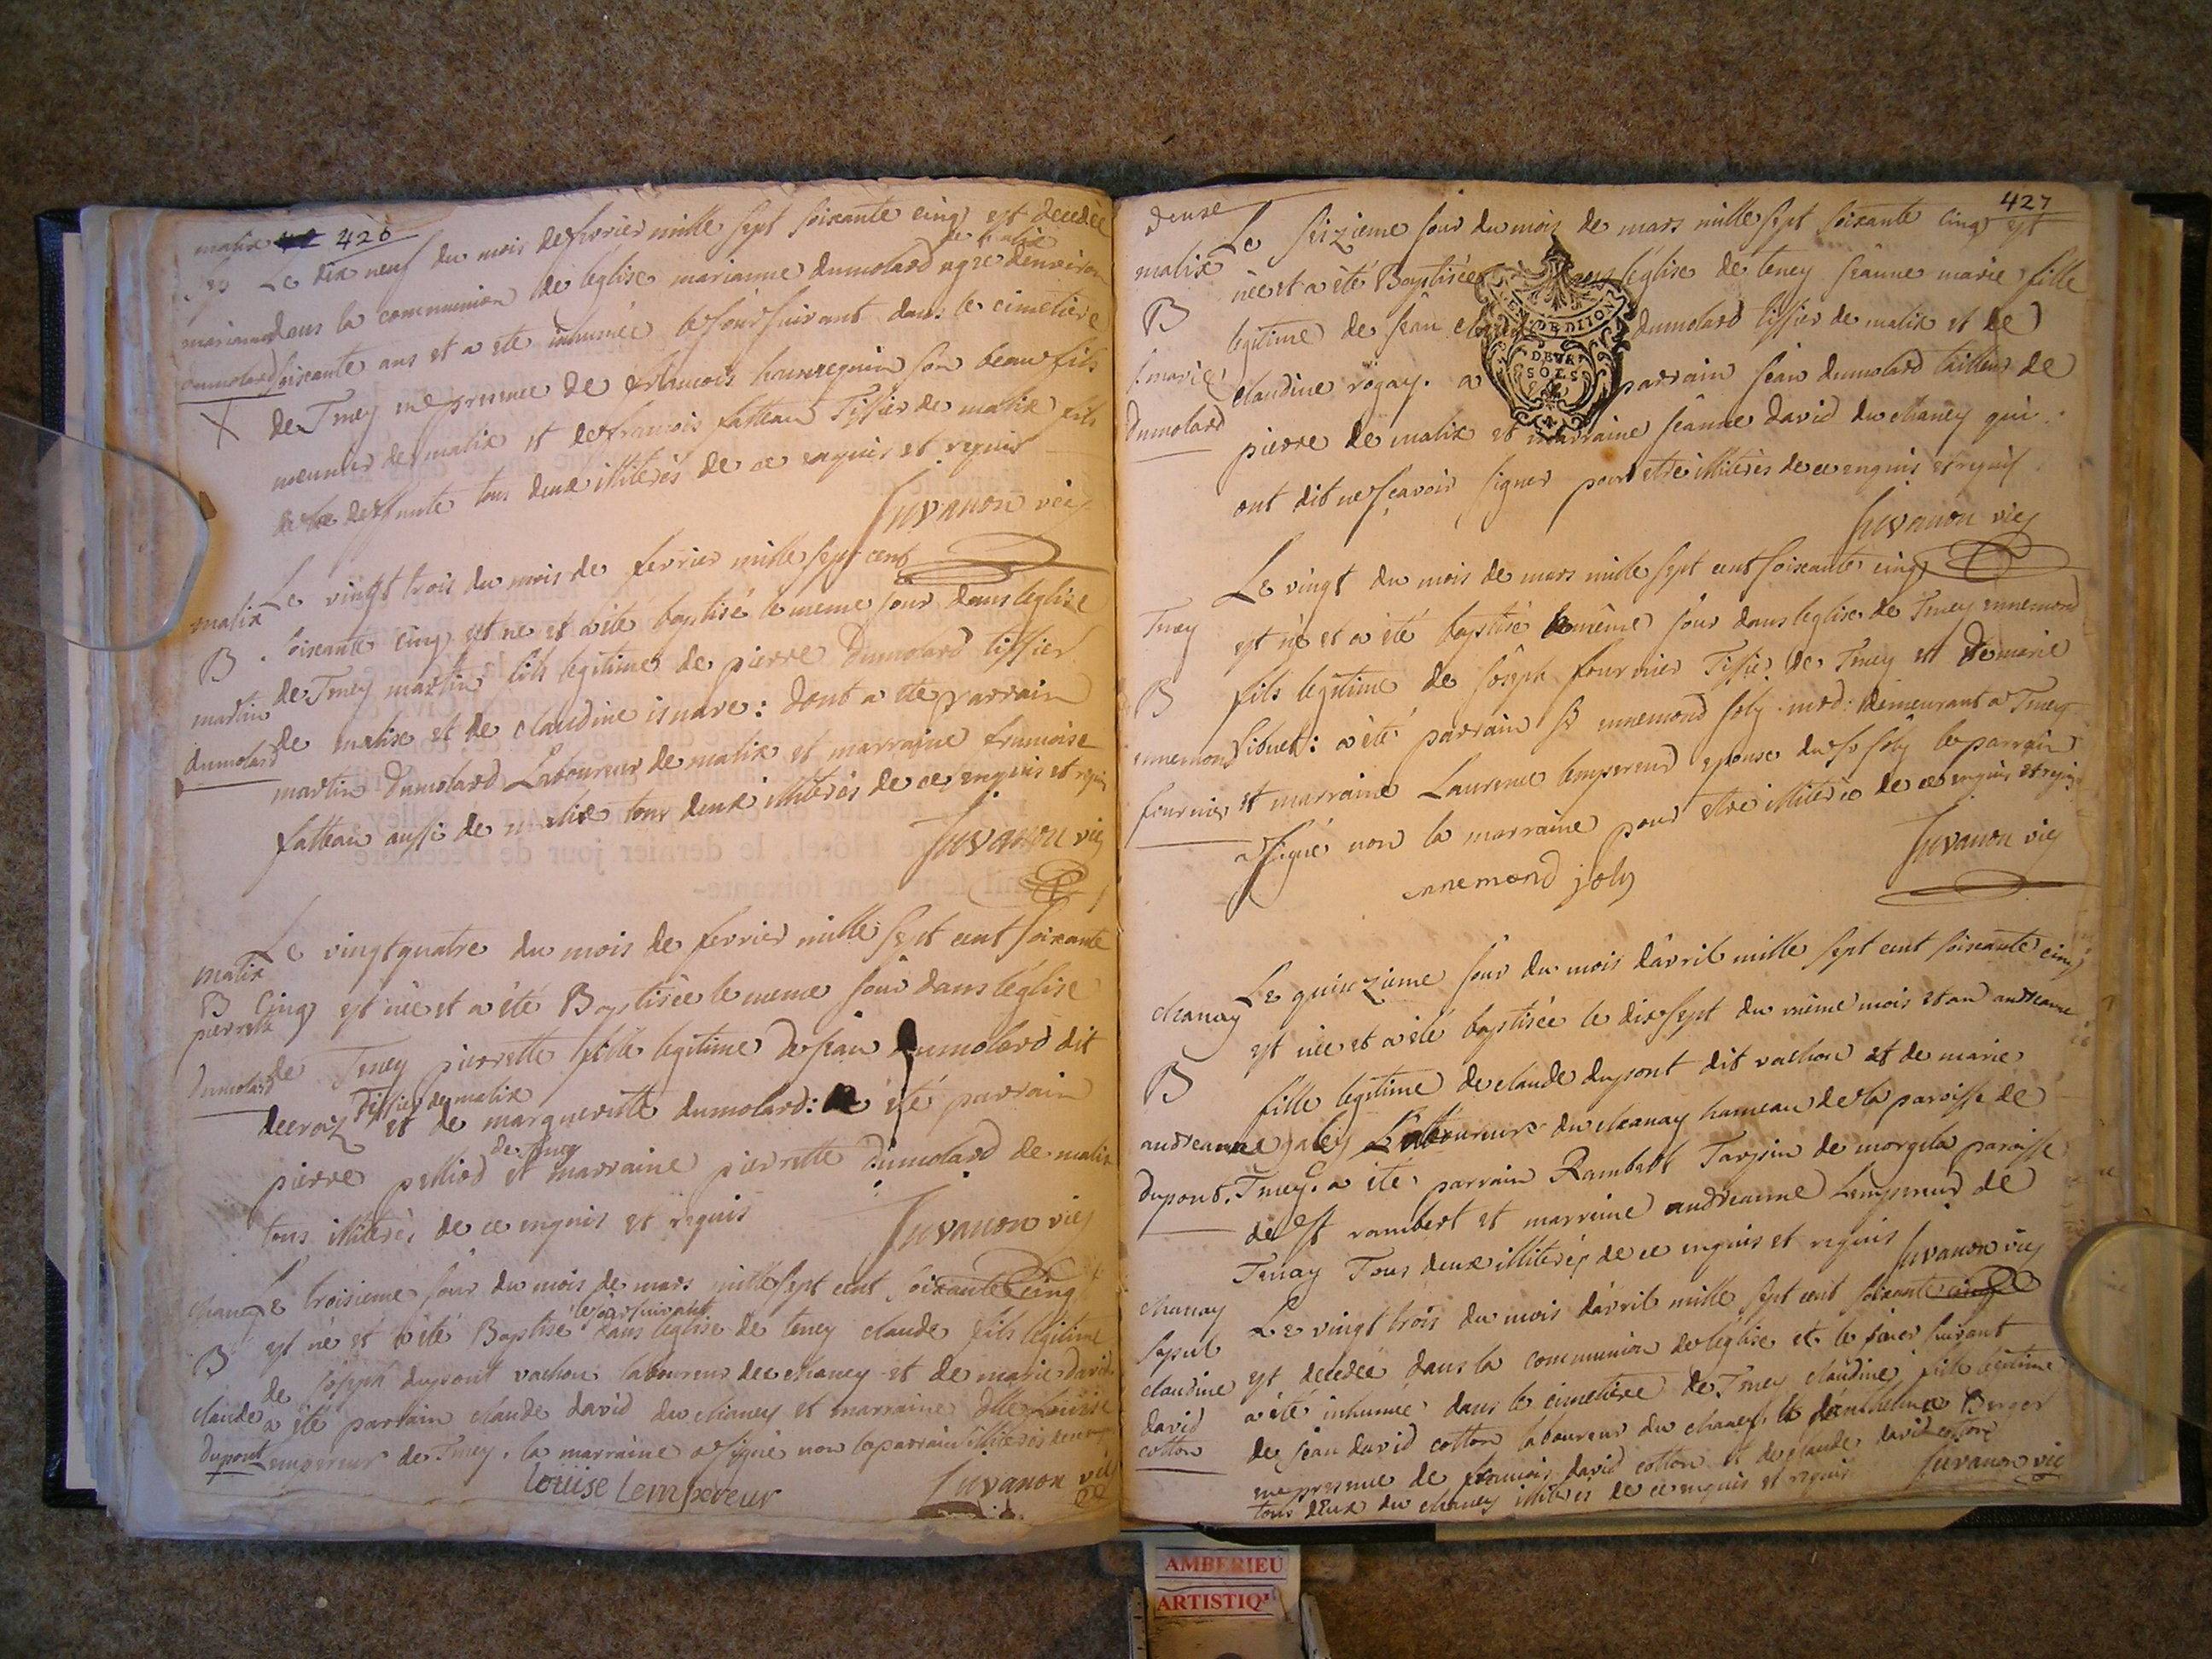 malix 426
Sep Le dix neuf du mois de fevrier mille sept soixante cinq est decedée
de malix
marianne dans la communion de leglise marianne dumolard agée denviron
dumolard soixante ans et a eté inhumée le jour suivant dans le cimetiere
de Tney en presence de francois hannequin son beau fils
meunier de malix et de francois fatteau Tissier de malix fils
de la deffunte tous deux illiterés de ce enquis et requis
Juvanon vic
Le vingt trois du mois de fevrier mille sept cent
malix
B soixante cinq est ne et a été baptisé le meme jour dans leglise
martin de Tney martin fils legitime de pierre Dumolard tissier
dumolard de malix et de claudine isnare: dont a été parrain
martin Dumolard Laboureur de malix et marraine francoise
fatteau aussi de malix tous deux illiterés de ce enquis et requis
Juvanon vic
Le vingt quatre du mois de fevrier mille sept cent soixante
malix
B Cinq est née et a été Baptisée le meme jour dans léglise
pierrette
dumolard de Tney pierrette fille legitime de jean dumolard dit
Tissier de malix
decroiz et de margueritte dumolard: a été parrain
de Tney
pierre pelliod et marraine pierrette Dumolard de malix
tous illiterés de ce enquis et requis
Juvanon vic
chaney Le troisieme jour du mois de mars mille sept cent soixante Cinq
le jour suivant
B est né et a été Baptisé dans léglise de teney claude fils légitime
de joseph dupont vachon laboureur de chaney et de marie david
claude a été parrain claude david du chaney et marraine dlle Louise
dupont Lempereur de Tney. la marraine a signé non le parrain illiteré de ce enquis
Louise Lempereur
Juvanon vic
427
dense
Le seizieme jour du mois de mars mille sept soixante cinq est
malix
née et a été Baptisée dans l'église de teney jeanne marie fille
B
legitime de jean claude dumolard tissier de malix et de
j. marie
claudine rogay. a parrain jean dumolard tailleur de
Dumolard
pierre de malix et marraine jeanne david du chaney qui
ont dit ne sçavoir signer pour etre illiterés de ce enquis et requis
Juvanon vic
EXPEDITION
DEUX
SOLS
Le vingt du mois de mars mille sept cent soixante cinq
Tney
est né et a été baptisé le même jour dans leglise de Tney ennemond
B
fils legitime de joseph fournier Tissier de Tney et de marie
ennemond Sibuet: a été parrain Sr ennemond joly md: demeurant a Tney
fournier et marraine Laurence lempereur epouse du sr joly le parrain
a signé non la marraine pour etre illiterée de ce enquis et requis
Juvanon vic
ennemond joly
Le quinzieme jour du mois d'avril mille sept cent soixante cinq
chanay
est née et a été baptisée le dix sept du même mois et an andreanne
B
fille legitime de claude dupont dit vachon et de marie
andreanne galey Laboureurs du chanay hameau de la paroisse de
dupont. Tney. a été parrain Rambert Tarpin de morgela paroisse
de St rambert et marraine andreanne Lempereur de
Tenay Tous deux illiterés de ce enquis et requis
Juvanon vic
chanay Le vingt trois du mois d'avril mille sept cent soixante cinq
Sepul
est decedée dans la communion de leglise et le jour suivant
claudine
a été inhumée dans le cimetiere de Tney claudine fille legitime
david
de jean david cotton laboureur du chaney et danthelmee Berger
cotton
en presence de francois david cotton et de claude david cotton
tous deux du chaney illiterés de ce enquis et requis Juvanon vic
AMBERIEU
ARTISTIQ